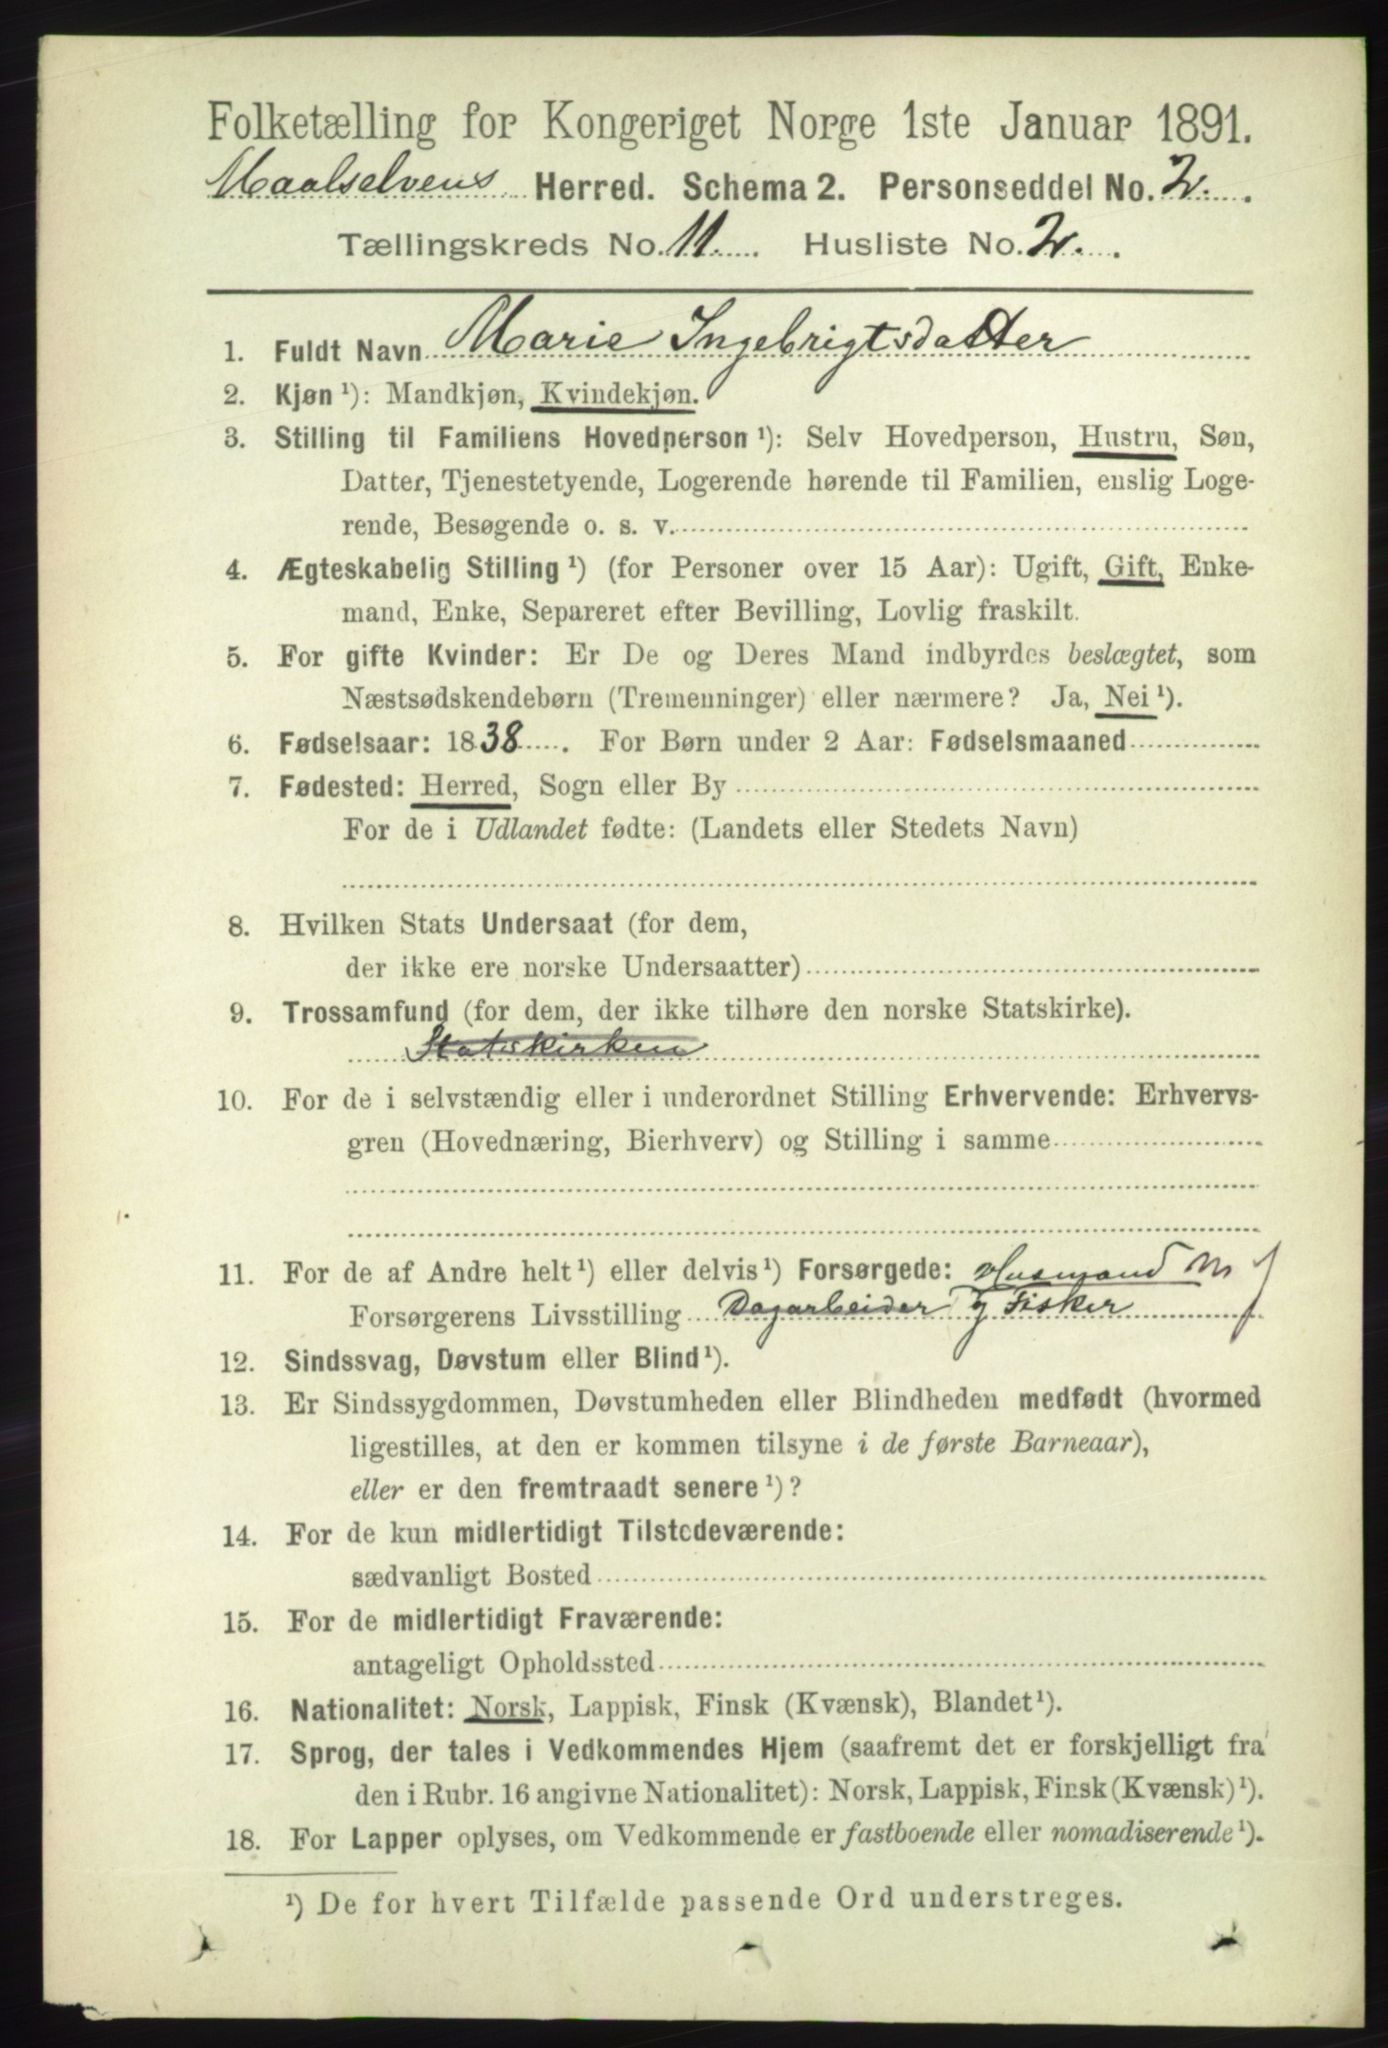 Folketælling for Kongeriget Norge 1ste Januar 1891.
Maalselvens Herred. Schema 2. Personseddel No. 2.
Tællingskreds No. 11. Husliste No. 2.
1. Fuldt Navn Marie Ingebrigtsdatter
2. Kjøn ¹): Mandkjøn, Kvindekjøn.
3. Stilling til Familiens Hovedperson ¹): Selv Hovedperson, Hustru, Søn,
Datter, Tjenestetyende, Logerende hørende til Familien, enslig Loge-
rende, Besøgende o. s. v.
4. Ægteskabelig Stilling ¹) (for Personer over 15 Aar): Ugift, Gift, Enke-
mand, Enke, Separeret efter Bevilling, Lovlig fraskilt.
5. For gifte Kvinder: Er De og Deres Mand indbyrdes beslægtet, som
Næstsødskendebørn (Tremenninger) eller nærmere? Ja, Nei ¹).
6. Fødselsaar: 1838. For Børn under 2 Aar: Fødselsmaaned
7. Fødested: Herred, Sogn eller By
For de i Udlandet fødte: (Landets eller Stedets Navn)
8. Hvilken Stats Undersaat (for dem,
der ikke ere norske Undersaatter)
9. Trossamfund (for dem, der ikke tilhøre den norske Statskirke).
Statskirken
10. For de i selvstændig eller i underordnet Stilling Erhvervende: Erhvervs-
gren (Hovednæring, Bierhverv) og Stilling i samme
11. For de af Andre helt ¹) eller delvis ¹) Forsørgede: Husmand m J
Forsørgerens Livsstilling Dagarbeider og Fisker
12. Sindssvag, Døvstum eller Blind ¹).
13. Er Sindssygdommen, Døvstumheden eller Blindheden medfødt (hvormed
ligestilles, at den er kommen tilsyne i de første Barneaar),
eller er den fremtraadt senere ¹)?
14. For de kun midlertidigt Tilstedeværende:
sædvanligt Bosted
15. For de midlertidigt Fraværende:
antageligt Opholdssted
16. Nationalitet: Norsk, Lappisk, Finsk (Kvænsk), Blandet ¹).
17. Sprog, der tales i Vedkommendes Hjem (saafremt det er forskjelligt fra
den i Rubr. 16 angivne Nationalitet): Norsk, Lappisk, Finsk (Kvænsk) ¹).
18. For Lapper oplyses, om Vedkommende er fastboende eller nomadiserende ¹).
¹) De for hvert Tilfælde passende Ord understreges.